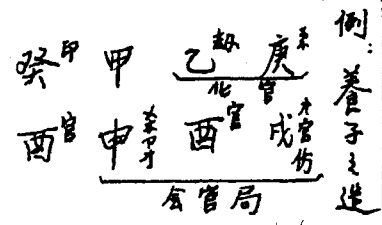 例：養子之造
癸印 甲 乙劫 庚杀
化官
酉官 申杀卩才 酉官 戌才官伤
会官局